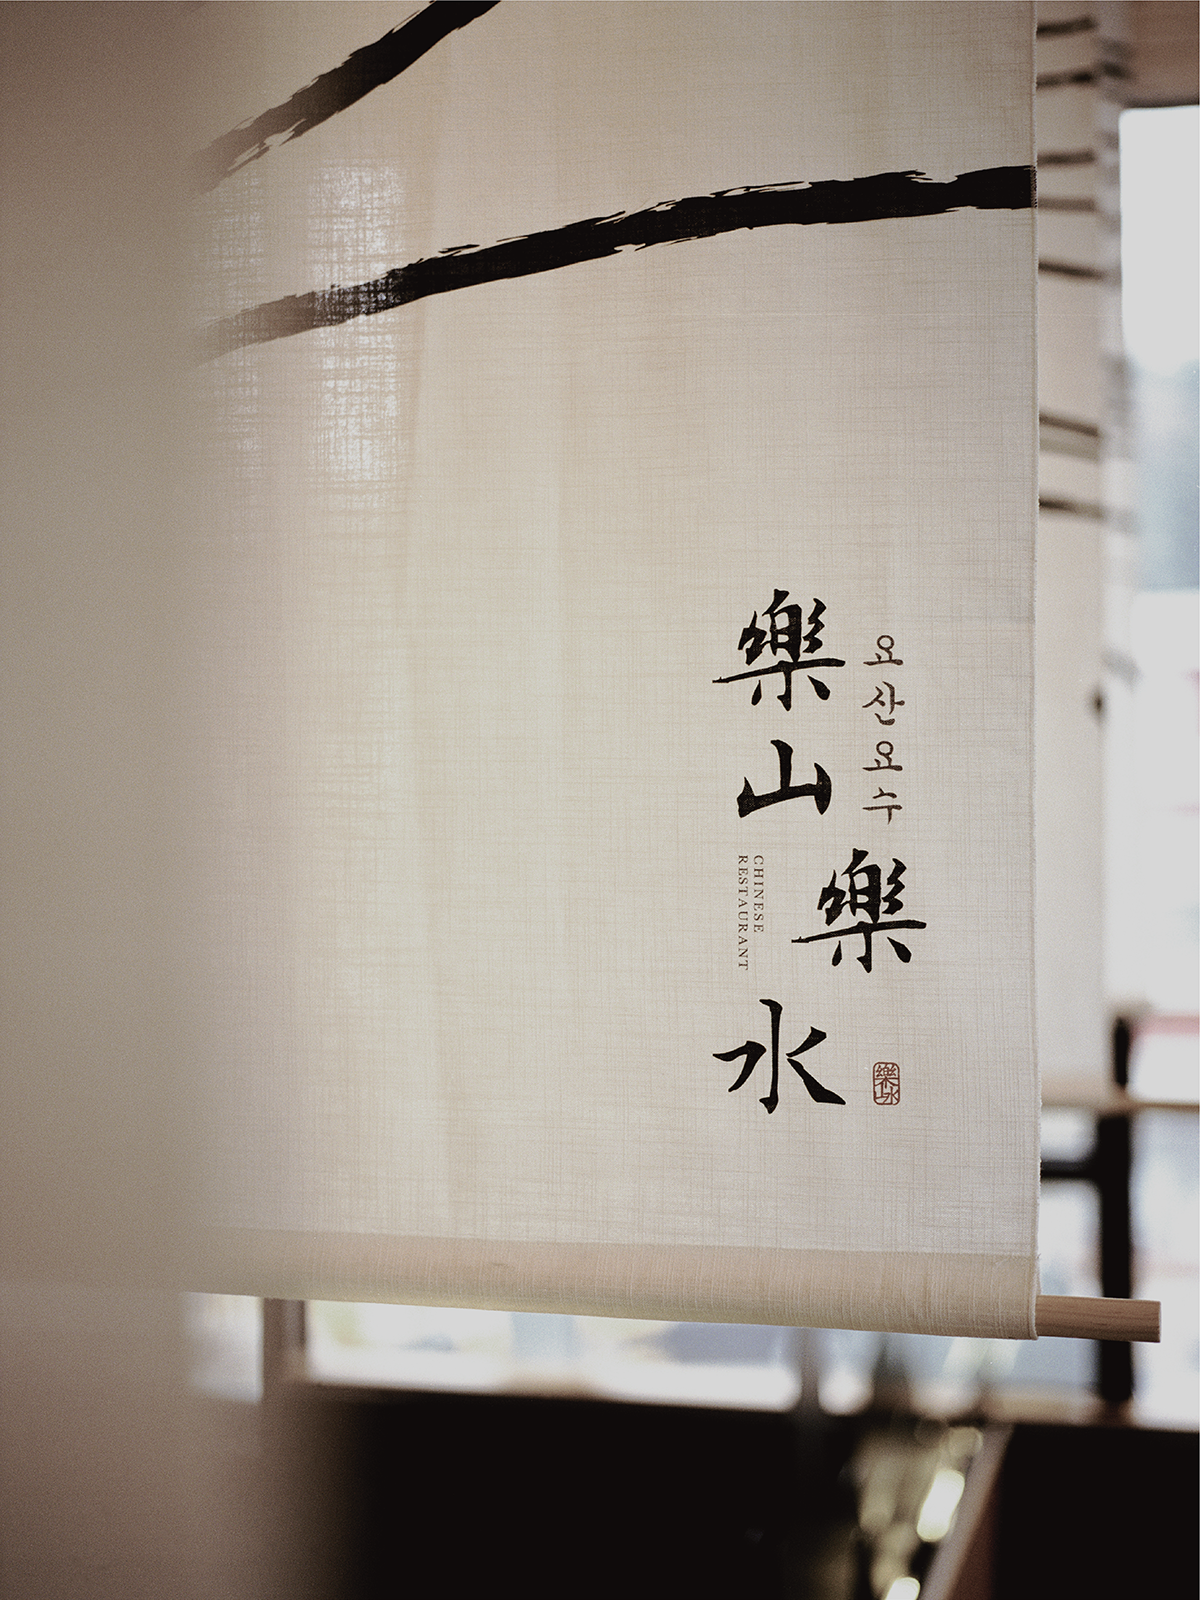 樂山樂水
요산요수
CHINESE
RESTAURANT
樂山水